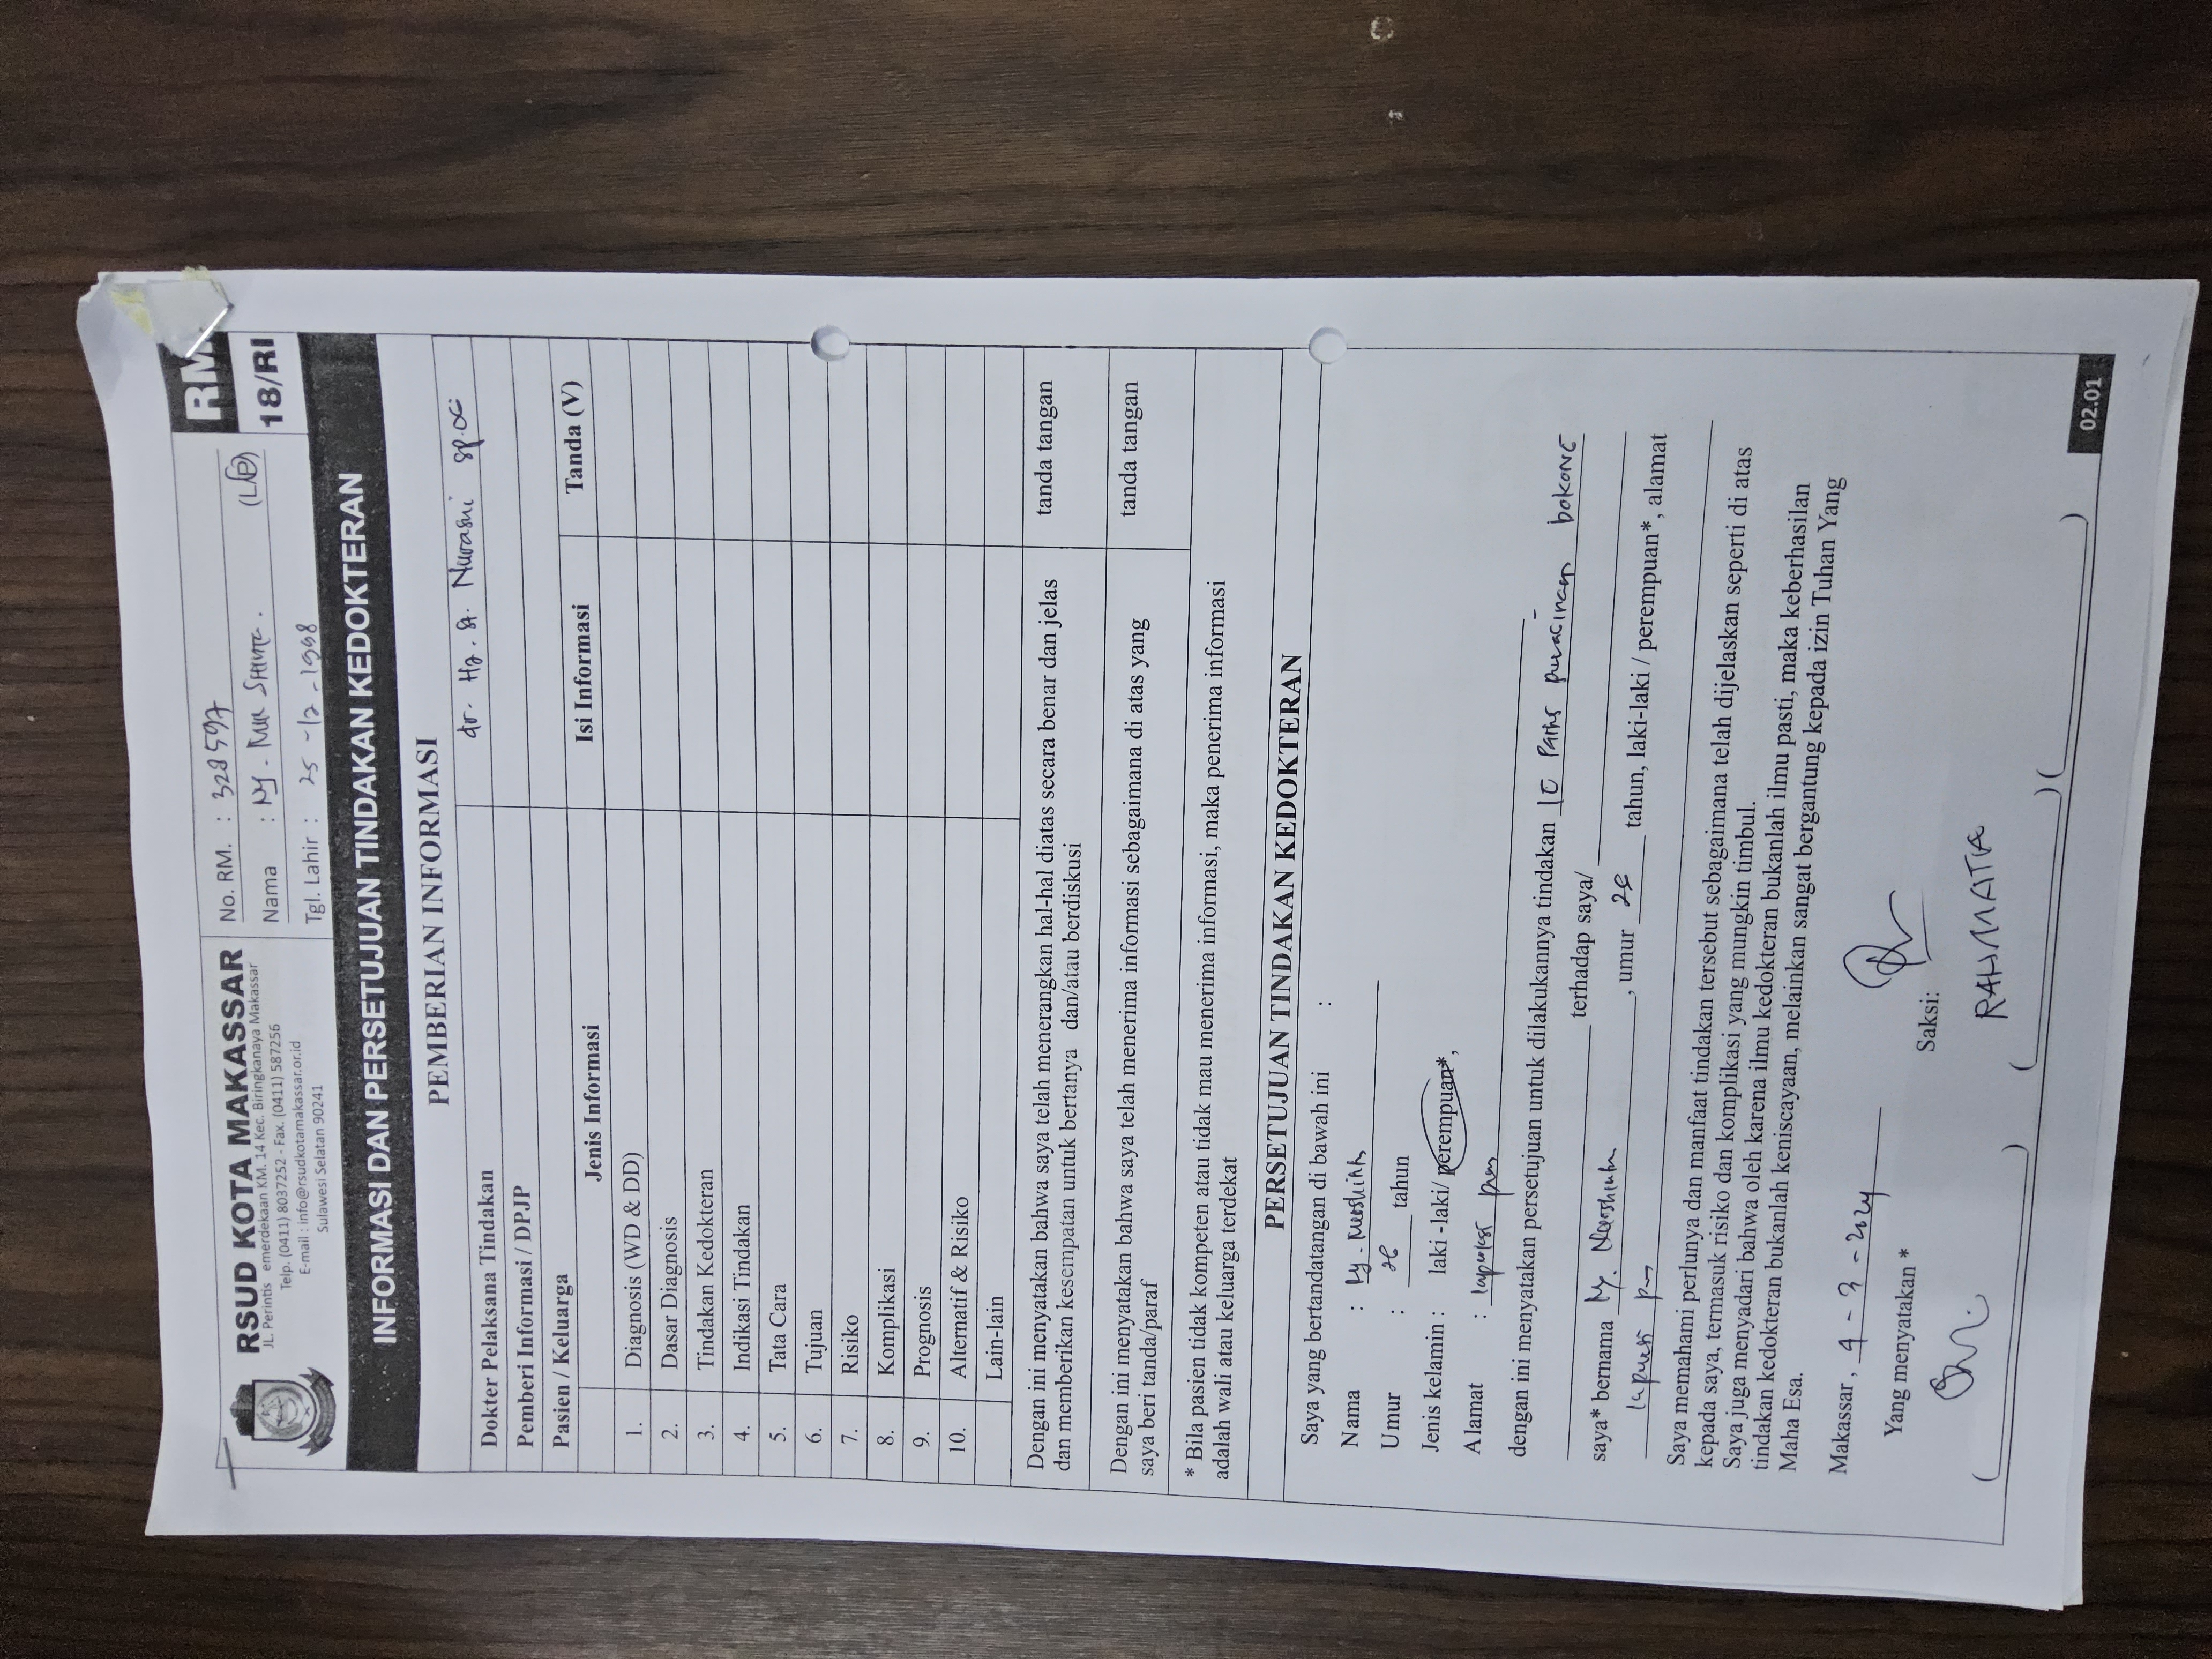 RSUD KOTA MAKASSAR
JL. Perintis emerdekaan KM. 14 Kec. Biringkanaya Makassar
Telp. (0411) 8037252 - Fax. (0411) 587256
E-mail : info@rsudkotamakassar.or.id
Sulawesi Selatan 90241
No. RM. : 328597
Nama : Ny. Nur (L/P)
Tgl. Lahir : 25 - 12 - 1998
RM
18/RI
INFORMASI DAN PERSETUJUAN TINDAKAN KEDOKTERAN
PEMBERIAN INFORMASI
Dokter Pelaksana Tindakan dr. Hj. St. Nurasni Sp.OG
Pemberi Informasi / DPJP
Pasien / Keluarga
Jenis Informasi Isi Informasi Tanda (V)
1. Diagnosis (WD & DD)
2. Dasar Diagnosis
3. Tindakan Kedokteran
4. Indikasi Tindakan
5. Tata Cara
6. Tujuan
7. Risiko
8. Komplikasi
9. Prognosis
10. Alternatif & Risiko
Lain-lain
Dengan ini menyatakan bahwa saya telah menerangkan hal-hal diatas secara benar dan jelas tanda tangan
dan memberikan kesempatan untuk bertanya dan/atau berdiskusi
Dengan ini menyatakan bahwa saya telah menerima informasi sebagaimana di atas yang tanda tangan
saya beri tanda/paraf
* Bila pasien tidak kompeten atau tidak mau menerima informasi, maka penerima informasi
adalah wali atau keluarga terdekat
PERSETUJUAN TINDAKAN KEDOKTERAN
Saya yang bertandatangan di bawah ini :
Nama : Ny.
Umur : 26 tahun
Jenis kelamin : laki -laki/ perempuan*,
Alamat :
dengan ini menyatakan persetujuan untuk dilakukannya tindakan bokong
terhadap saya/
saya* bernama Ny. , umur 26 tahun, laki-laki / perempuan*, alamat
Saya memahami perlunya dan manfaat tindakan tersebut sebagaimana telah dijelaskan seperti di atas
kepada saya, termasuk risiko dan komplikasi yang mungkin timbul.
Saya juga menyadari bahwa oleh karena ilmu kedokteran bukanlah ilmu pasti, maka keberhasilan
tindakan kedokteran bukanlah keniscayaan, melainkan sangat bergantung kepada izin Tuhan Yang
Maha Esa.
Makassar, 4 - 3 - 2024
Yang menyatakan * Saksi:
RAHMATIA
( ) ( ) ( )
02.01